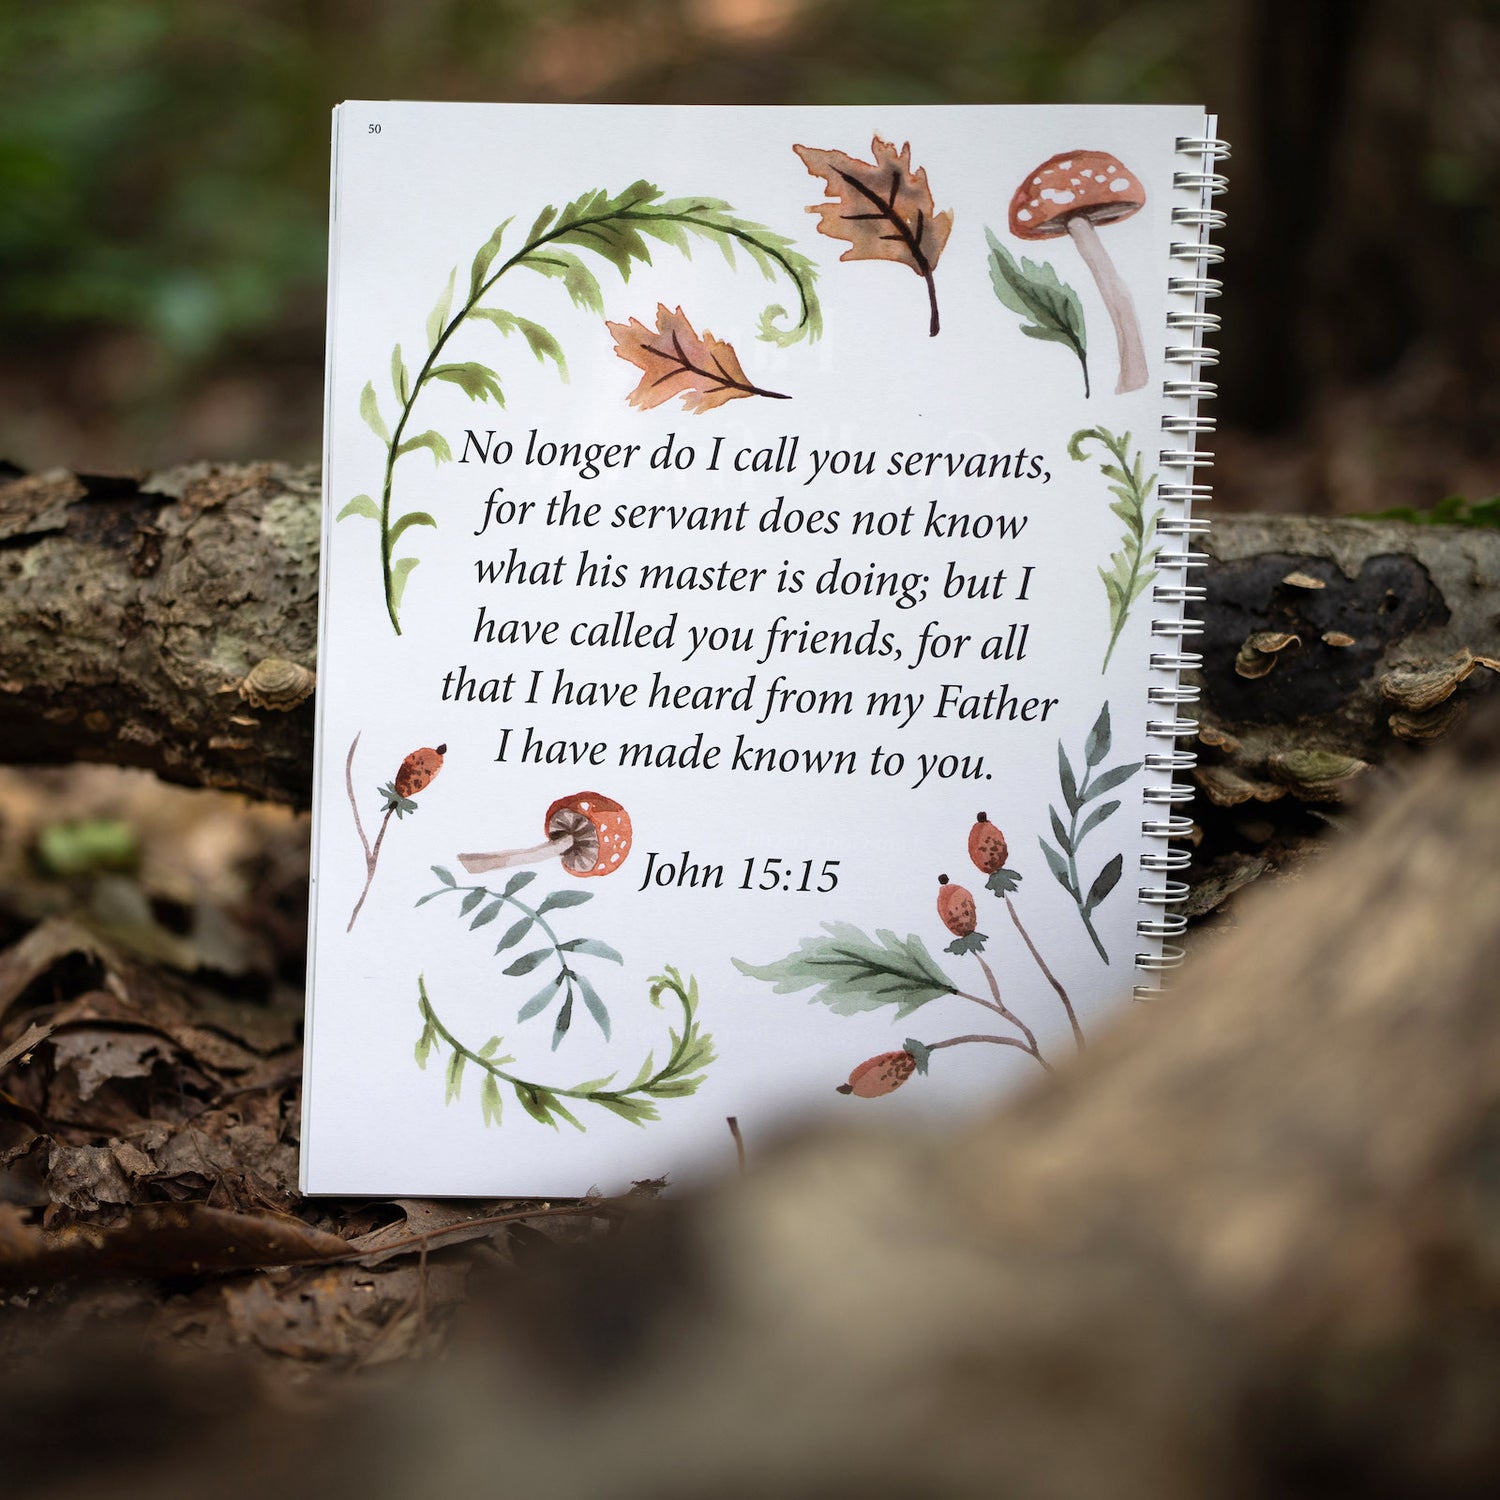 50
No longer do I call you servants,
for the servant does not know
what his master is doing; but I
have called you friends, for all
that I have heard from my Father
I have made known to you.
John 15:15